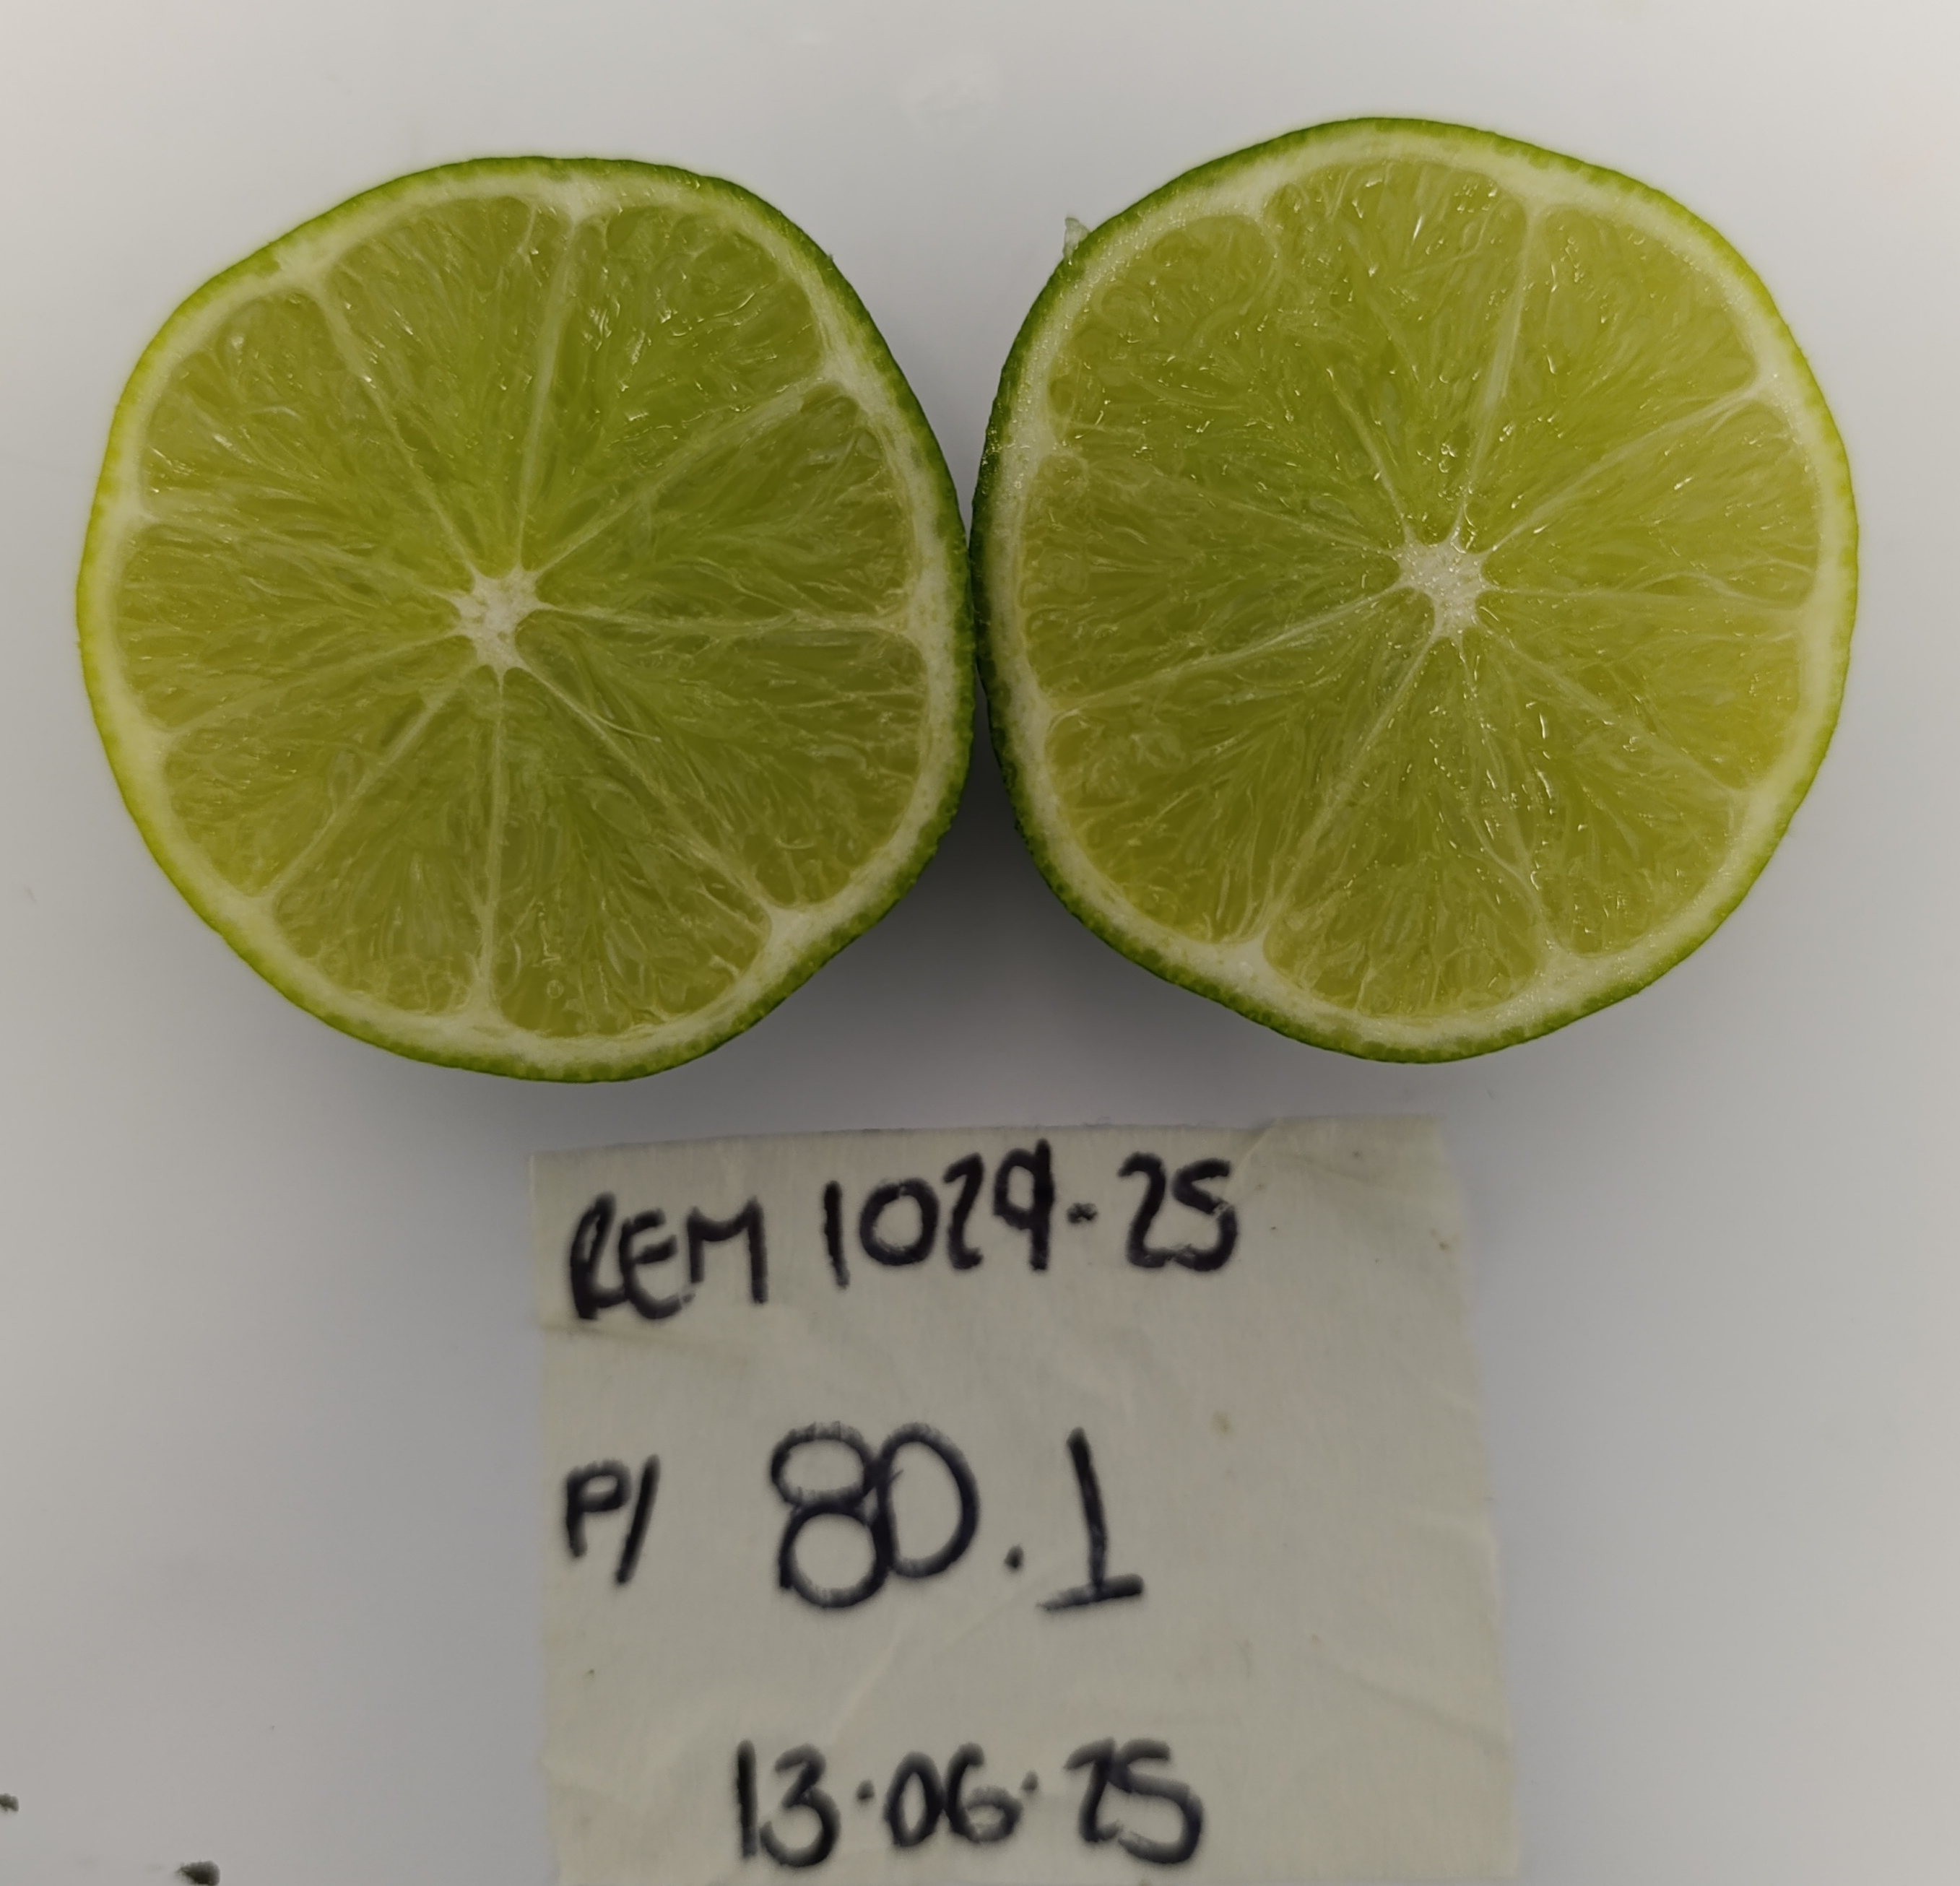 REM 1029-25
P/ 80.1
13.06.25